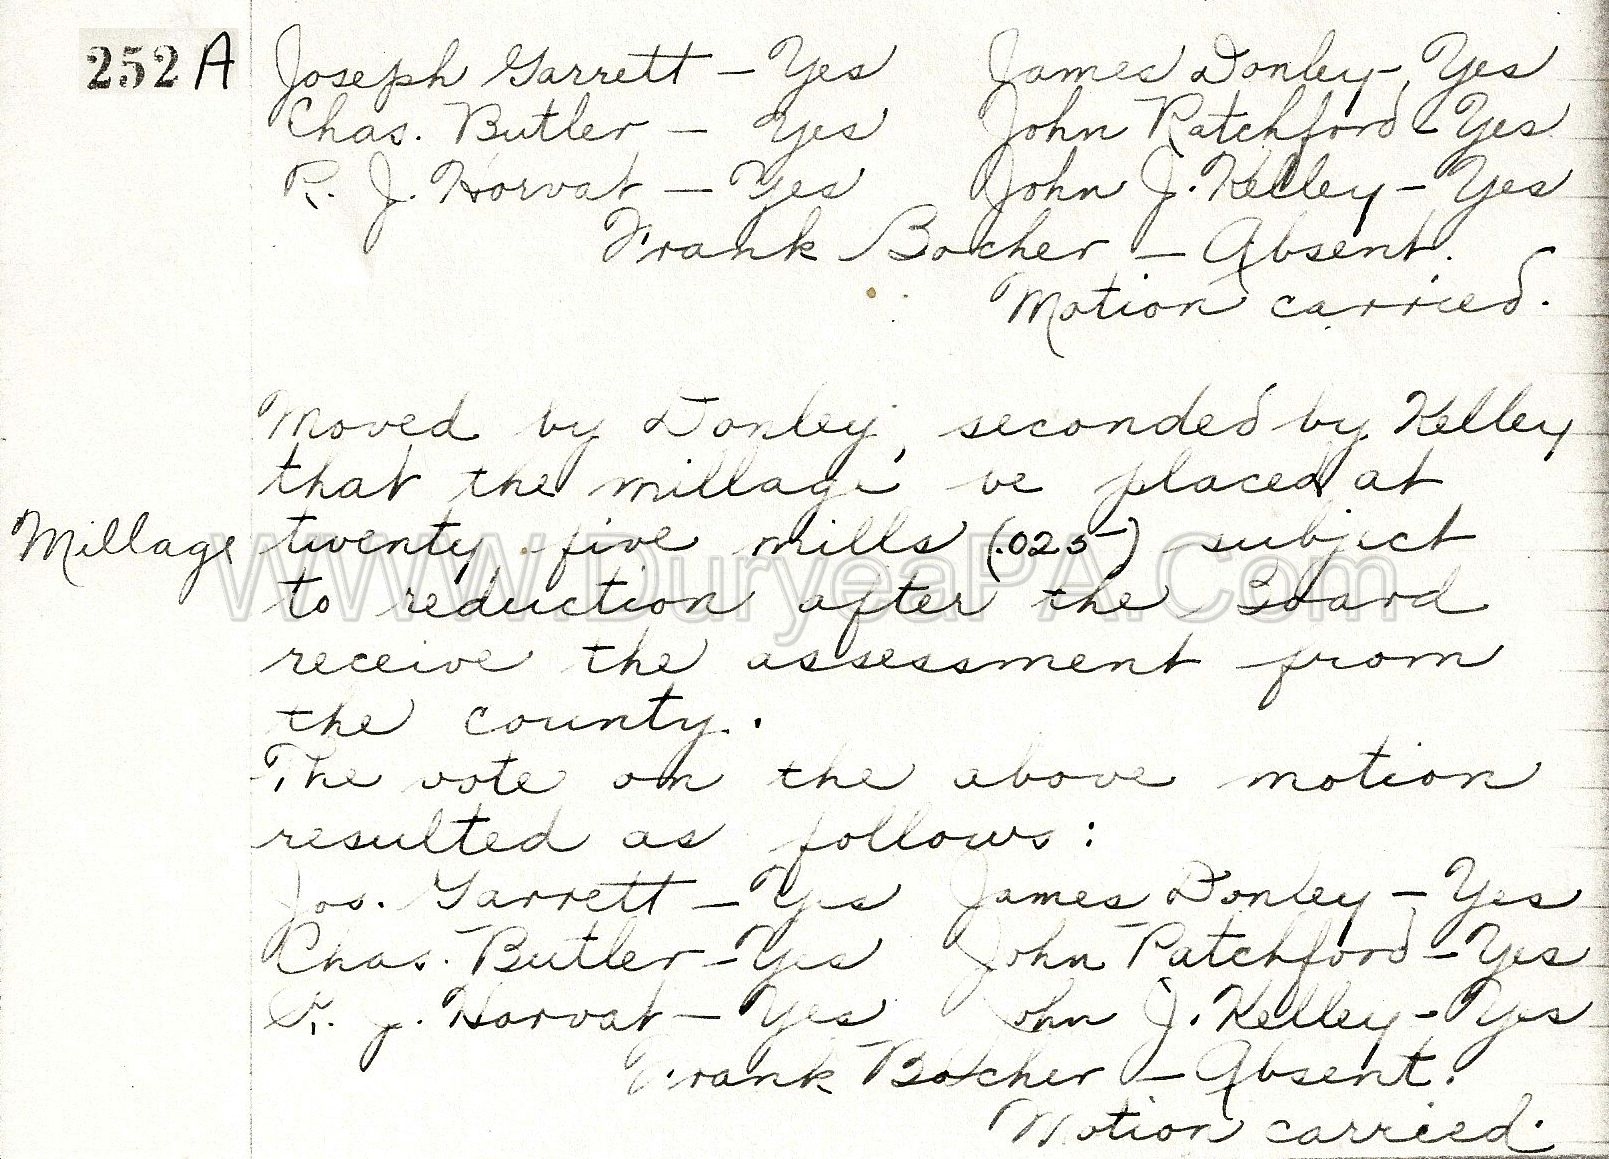 252 A Joseph Garrett — Yes James Donley — Yes
Chas. Butler — Yes John Ratchford — Yes
R. J. Horvat — Yes John J. Kelley — Yes
Frank Bocher — Absent.
Motion carried.
Moved by Donley, seconded by Kelley
that the millage be placed at
Millage twenty five mills (.025) subject
to reduction after the Board
receive the assessment from
the county.
The vote on the above motion
resulted as follows:
Jos. Garrett — Yes James Donley — Yes
Chas. Butler — Yes John Ratchford — Yes
R. J. Horvat — Yes John J. Kelley — Yes
Frank Bocher — Absent.
Motion carried.
WWW.DuryeaPA.Com